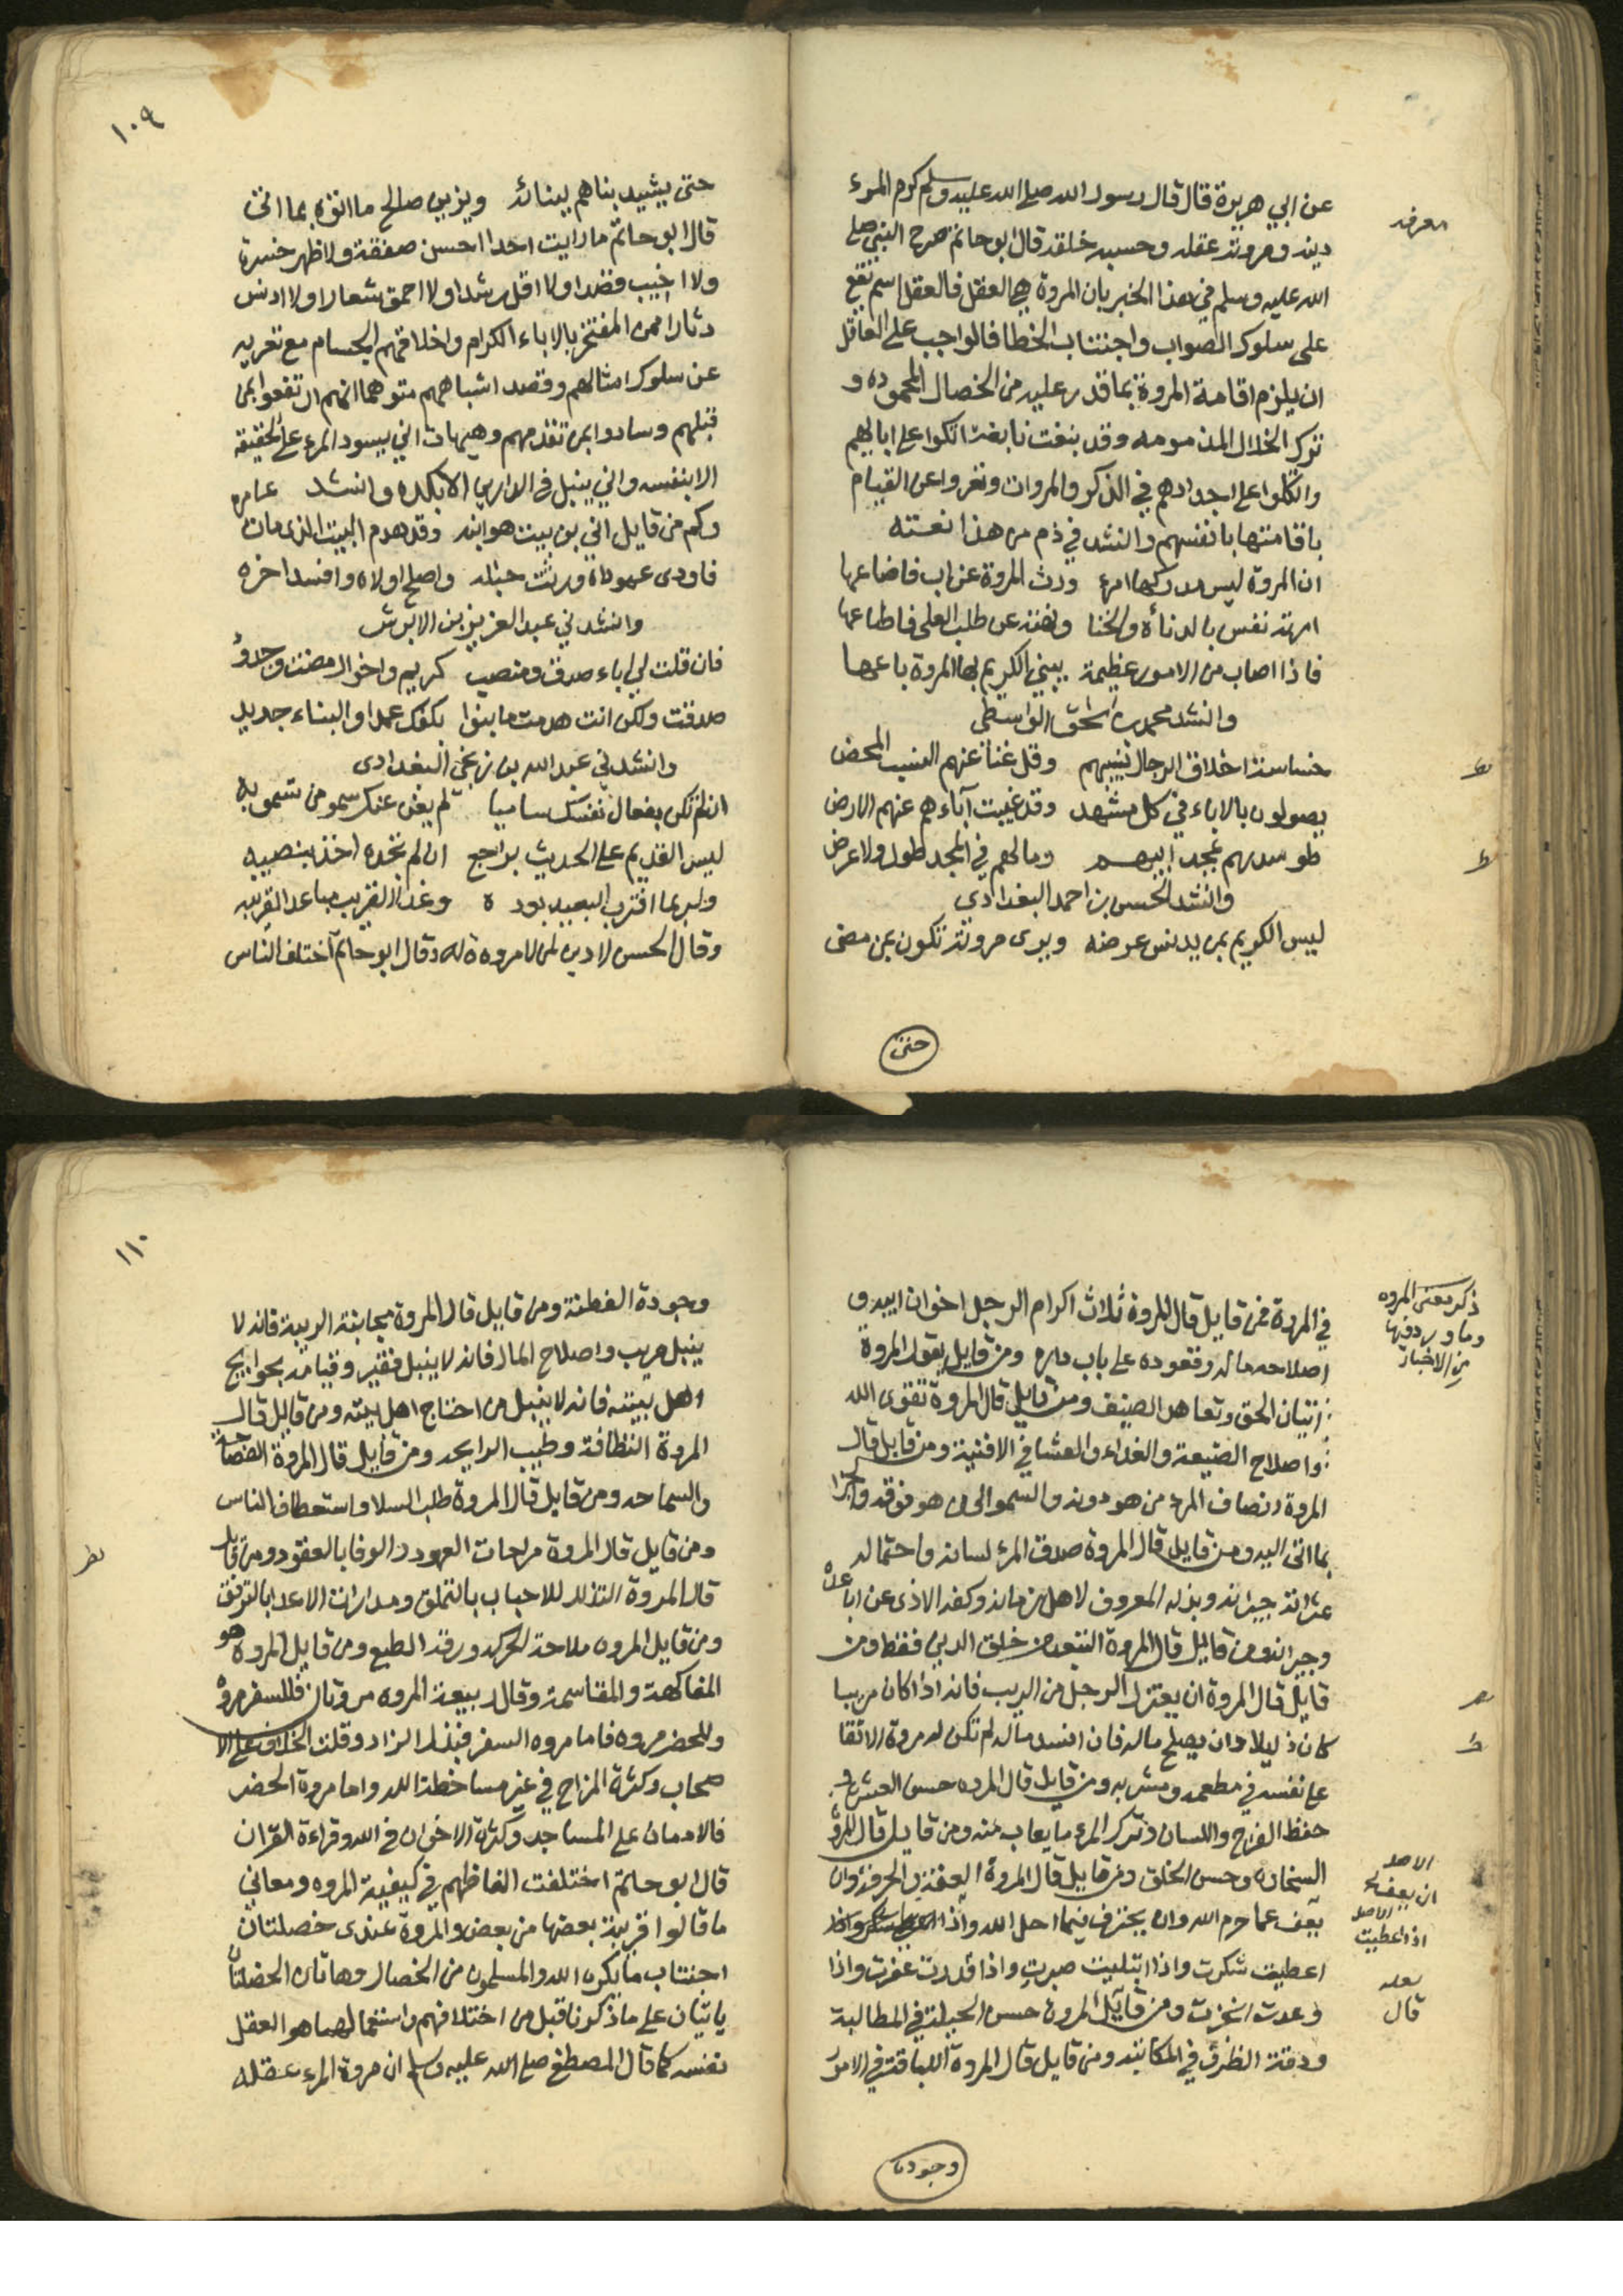 معرفه
عن ابي هريرة قال قال رسول الله صلى الله عليه وسلم كرم المرء
دينه ومروته عقله وحسبه خلقه قال ابو حاتم صرح النبي صلى
الله عليه وسلم في هذا الخبر بان المروة هي العقل فالعقل اسم يقع
على سلوك الصواب واجتناب الخطا فالواجب على العاقل
ان يلزم اقامة المروة بما قدر عليه من الخصال المحموده و
ترك الخلال المذمومه وقد نبغت نابغة اتكوا على ابايهم
واتكلوا على اجدادهم في الذكر والمروات وتعروا عن القيام
باقامتها بانفسهم وانشد في ذم من هذا نعته
ان المروة ليس يدركها امرء ورث المروة عن اب فاضاعها
امرته نفس بالدنأة والخنا ونهته عن طلب العلى فاطاعها
فاذا اصاب من الامور عظيمة يبني الكريم بها المروة باعها
وانشد محمد بن اسحق الواسطى
خساسة اخلاق الرجال تشينهم وقل غنا عنهم النسب المحض
يصولون بالاباء في كل مشهد وقد غيبت آباءهم عنهم الارض
طو سدبهم بمجد ابيهم ومالهم في المجد طول ولا عرض
وانشد الحسن بن احمد البغدادى
ليس الكريم بمن يدنس عرضه ويرى مروته تكون بمن مضى
حتى
١٠٩
حتى يشيد بناهم ببنائه ويزين صالح ما اتوه بما اتى
قال ابو حاتم ما رايت احدا احسن صفقة ولا اظهر حسرة
ولا اخيب قصدا ولا اقل رشدا ولا احمق شعارا ولا ادنس
دثارا من المفتخر بالاباء الكرام واخلاقهم الجسام مع تعريه
عن سلوك امثالهم وقصد اشباههم متوهما انهم ارتفعوا بمن
قبلهم وسادوا بمن تقدمهم وهيهات انى يسود المرء على الحقيقة
الا بنفسه وانى ينبل في الدارين الا بكده وانشد عامر
وكم من قايل اني بن بيت هو ابنه وقد هدم البيت الذى مات
فاودى عمود اه ورثت حباله واصلح اولاه وافسد اخره
وانشدني عبد العزيز بن الابرش
فان قلت لي اباء صدق ومنصب كريم واخوال مضت وجدود
صدقت ولكن انت هدمت ما بنوا بكفك عمدا والبناء جديد
وانشدني عبد الله بن زنجي البغدادى
ان لم تكن بفعال نفسك ساميا لم يغن عنك سمو من تسمو به
ليس القديم على الحديث براجح ان لم تجده اخذ بنصيبه
ولربما اقترب البعيد بوده وغدا القريب مباعدا لقريبه
وقال الحسن لا دين لمن لا مروه ة له وقال ابو حاتم اختلف الناس
ذكر معنى المروه
وما ورد فيها
من الاخبار
في المروة فمن قايل قال المروة ثلاث اكرام الرجل اخوان ابيه و
اصلاحه ماله وقعوده على باب داره ومن قايل يقول المروة
اتيان الحق وتعاهد الضيف ومن قايل قال المروة تقوى الله
واصلاح الضيعة والغداء والعشا في الافنية ومن قايل قال
المروة انصاف المرء من هو دونه والسمو الى من هو فوقه والجزا
بما اتى اليه ومن قايل قال المروة صدق المرء لسانه واحتماله
عثرات جيرانه وبذله المعروف لاهل زمانه وكفه الاذى عن اباعده
وجيرانه ومن قايل قال المروة التبعد من خلق الدني فقط ومن
قايل قال المروة ان يعتزل الرجل من الريب فانه اذا كان مريبا
كان ذليلا وان يصلح ماله فان افسد ماله لم تكن له مروة الاتقا
على نفسه في مطعمه ومشربه ومن قايل قال المروه حسن العشرة و
حفظ الفرج واللسان وترك المرء ما يعاب منه ومن قايل قال المروة
السخاوه وحسن الخلق ومن قايل قال المروة العفة في الحرفة وان
يعف عما حرم الله وان يحترف فيما احل الله واذا
اعطيت شكرت واذا ابتليت صبرت واذا قدرت عفرت واذا
وعدت انجزت ومن قايل المروة حسن الحيلة في المطالبة
ودقة الظرف في المكاتبة ومن قايل قال المروة اللباقة في الامور
الاصل
ان يعف
الاصل
اذا اعطيت
لعله
قال
وجودة
١١٠
وجودة الفطنة ومن قايل قال المروة مجانبة الريبة فانه لا
ينبل مريب واصلاح المال فانه لا ينبل فقير وقيامه بحوايج
اهل بيته فانه لا ينبل من احتاج اهل بيته ومن قايل قال
المروة النظافة وطيب الرايحه ومن قايل قال المروة الفصاحة
والسماحه ومن قايل قال المروة طلب السلا واستعطاف الناس
ومن قايل قال المروة مراعات العهود والوفا بالعقود ومن قايل
قال المروة التذلل للاحباب بالتملق ومدارات الاعدا بالترفق
ومن قايل المروه ملاحة الحركه ورقة الطبع ومن قايل المروه هو
المفاكهة والمقاسمة وقال ربيعة المروه مروتان فللسفر مروة
وللحضر مروه فاما مروه السفر فبذل الزاد وقلت الخلاف على الا
صحاب وكثرة المزاح في غير مساخطة الله واما مروة الحضر
فالادمان على المساجد وكثرة الاخوان في الله وقراءة القران
قال ابو حاتم اختلفت الفاظهم في كيفية المروه ومعاني
ما قالوا قريبة بعضها من بعض والمروة عندى خصلتان
اجتناب ما يكره الله والمسلمون من الخصال وهاتان الخصلتان
ياتيان على ما ذكرنا قبل من اختلافهم واستعمالهما هو العقل
نفسه كما قال المصطفى صلى الله عليه وسلم ان مروة المرء عقله